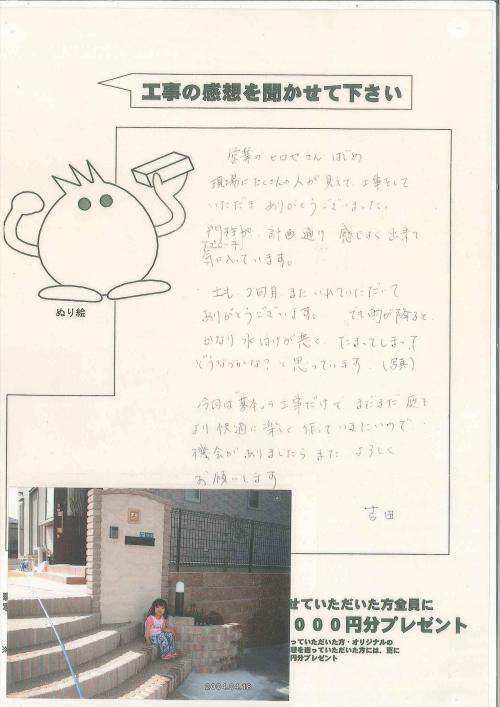 工事の感想を聞かせて下さい
営業の ヒロセさん はじめ
現場にたくさんの人が見えて、工事をして
いただき ありがとうございました。
門柱が、計画通り 感じよく出来て
アプローチ
気に入っています。
土も、2回目、また いれていただいて
ありがとうございます。 でも雨が降ると、
かなり 水はけが悪く、たまってしまって
どうなつかな?と思っています。(写真)
今回は"基本"の工事だけで、まだまだ 庭を
より快適に楽しく 作っていきたいので
機会がありましたら また よろしく
お願いします
吉田
ぬり絵
せていただいた方全員に
000円分プレゼント
っていただいた方・オリジナルの
想を送っていただいた方には、更に
円分プレゼント
※
2004.04.18